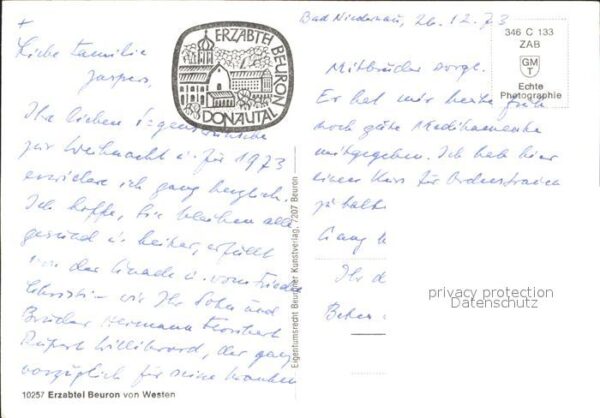 +
Liebe Familie
Jaspers,
Ihre lieben Segenswünsche
zur Weihnacht u. für 1973
erwidere ich ganz herzlich.
Ich hoffe, Sie bleiben alle
gesund u. heiter, erfüllt
von der Gnade u. vom Frieden
Christi – wie Ihr Sohn und
Bruder Hermann
Rupert Willibrord, der ganz
vorzüglich für seine kranken
10257 Erzabtei Beuron von Westen
ERZABTEI BEURON
DONAUTAL
Eigentumsrecht Beuroner Kunstverlag, 7207 Beuron
Bad Niedernau, 26.12.73
Mitbrüder sorgt.
Er hat mir heute früh
noch gute Medikamente
mitgegeben. Ich hab hier
einen Kurs für Ordensfrauen
zu halten
Ganz
Ihr
346 C 133
ZAB
GM
T
Echte
Photographie
privacy protection
Datenschutz